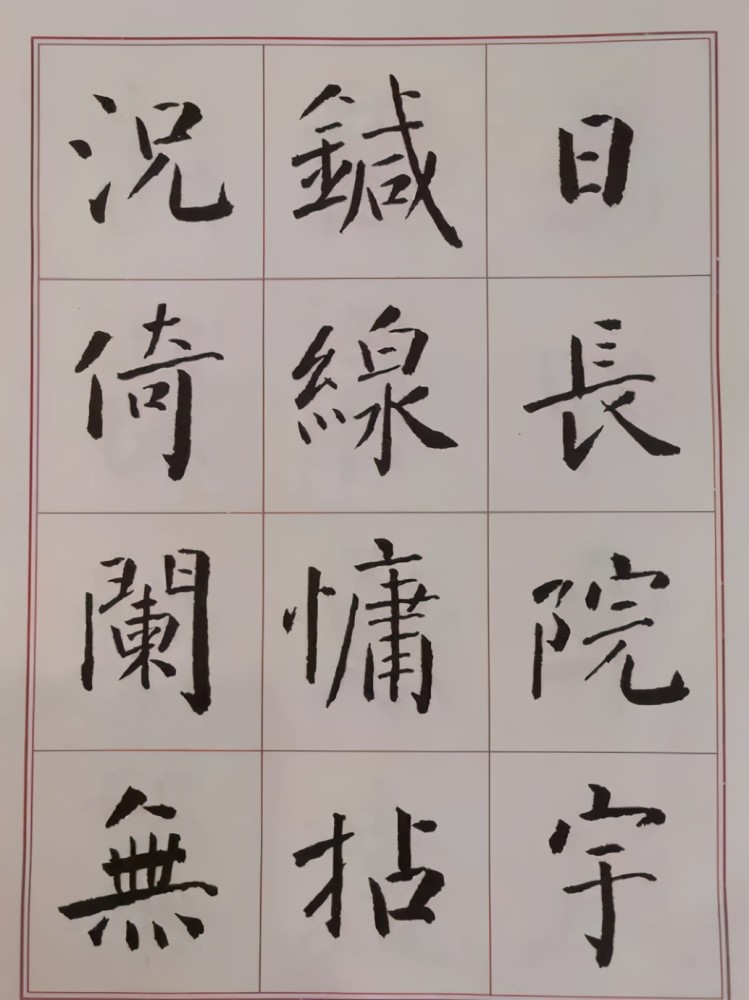 日長院宇
鍼線慵拈
況倚闌無